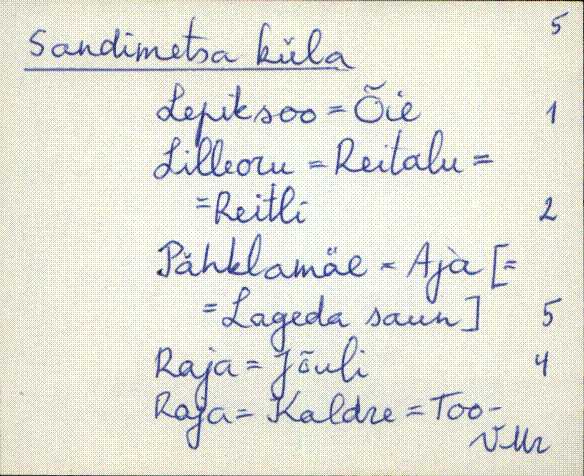 5
Sandimetsa küla
Lepiksoo = Õie 1
Lilleoru = Reitalu =
= Reitli 2
Pähklamäe = Aja [=
= Lageda saun] 5
Raja = Jõuli 4
Raja = Kaldre = Too-